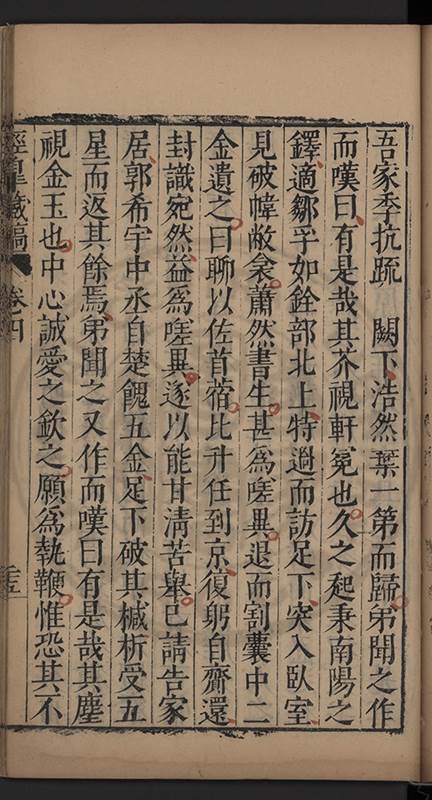 吾家季抗疏　闕下浩然棄一第而歸弟聞之作
而嘆曰有是哉其芥視軒冕也久之起秉南陽之
鐸適鄒孚如銓部北上特過而訪足下突入臥室
見破幃敝衾蕭然書生甚爲嗟異退而割囊中二
金遺之曰聊以佐首蓿比升任到京復躬自齎還
封識宛然益爲嗟異遂以能甘清苦舉已請告家
居郭希宇中丞自楚餽五金足下破其椷析受五
星而返其餘焉弟聞之又作而嘆曰有是哉其塵
視金玉也中心誠愛之欽之願爲執鞭惟恐其不
涇皐藏稿　卷四